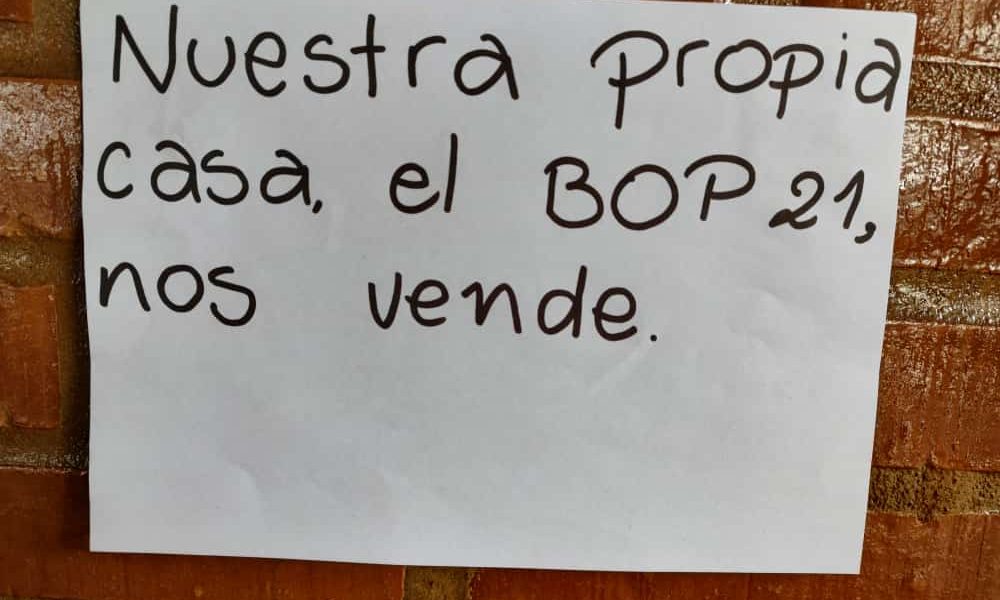 Nuestra propia
casa, el BOP 21,
nos vende.